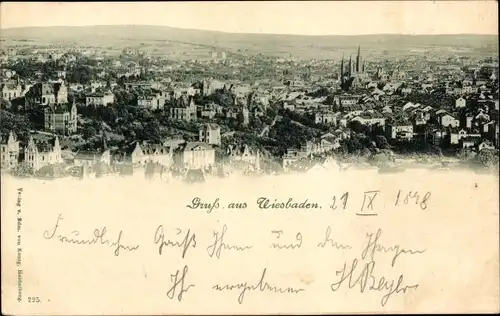 Gruß aus Wiesbaden. 21 IX 1898
Freundlichen Gruß Ihnen und den Ihrigen
Ihr ergebener H Beyle
Verlag v. Edm. von König, Heidelberg.
225.